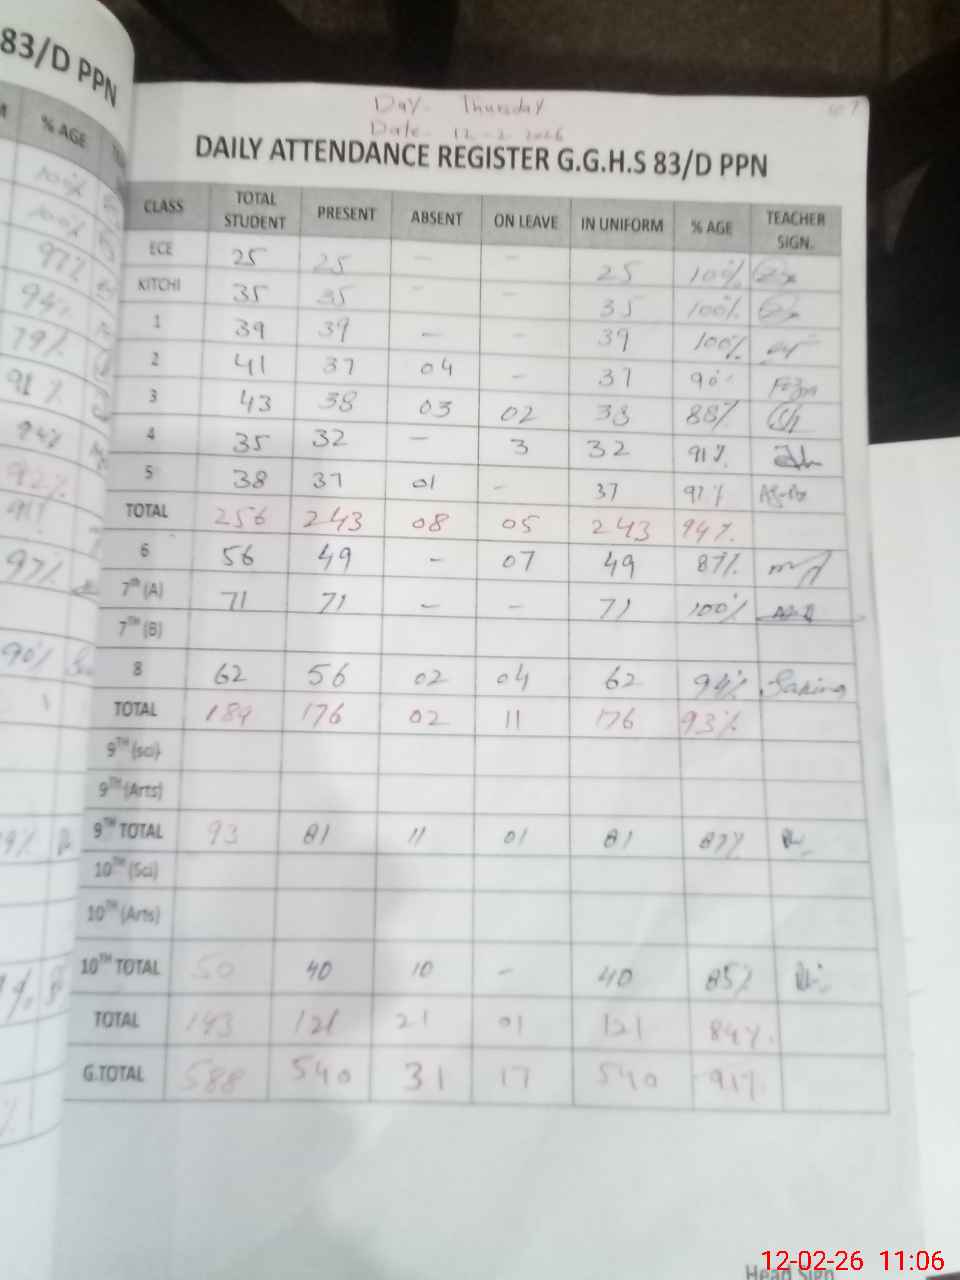 83/D PPN
% AGE
100%
100%
97%
94%
79%
91%
94%
92%
97%
90%
Day. Thursday
Date. 12-2-2026
DAILY ATTENDANCE REGISTER G.G.H.S 83/D PPN
CLASS TOTAL STUDENT PRESENT ABSENT ON LEAVE IN UNIFORM % AGE TEACHER SIGN.
ECE 25 25 - - 25 100%
KITCHI 35 35 - - 35 100%
1 39 39 - - 39 100%
2 41 37 04 - 37 90%
3 43 38 03 02 38 88%
4 35 32 - 3 32 91%
5 38 37 01 - 37 97%
TOTAL 256 243 08 05 243 94%
6 56 49 - 07 49 87%
7th (A) 71 71 - - 71 100%
7TH (B)
8 62 56 02 04 62 94%
TOTAL 189 176 02 11 176 93%
9TH (sci)
9TH (Arts)
9TH TOTAL 93 81 11 01 81 87%
10TH (Sci)
10TH (Arts)
10TH TOTAL 50 40 10 - 40 85%
TOTAL 143 121 21 01 121 84%.
G.TOTAL 588 540 31 17 540 91%
Head Sign
12-02-26 11:06